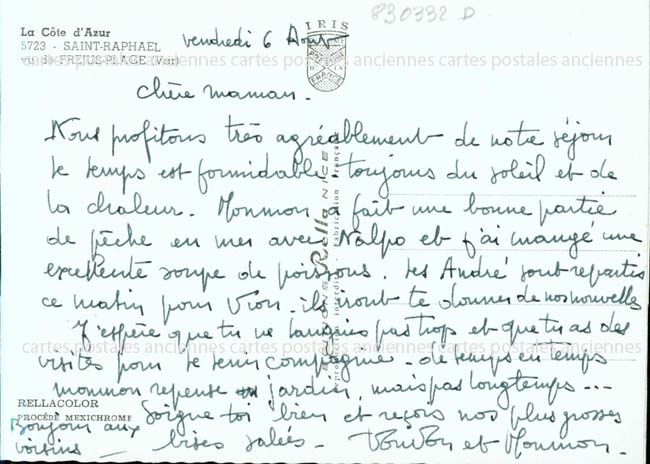 830332 D
La Côte d'Azur
5723 - SAINT-RAPHAEL
vu de FREJUS-PLAGE (Var)
IRIS
vendredi 6 Août
cartes postales anciennes cartes postales anciennes cartes postales anciennes
Chère maman.
Nous profitons très agréablement de notre séjour
le temps est formidable, toujours du soleil et de
la chaleur. Monmon a fait une bonne partie
de pêche en mer avec Nalpo et j'ai mangé une
excellente soupe de poissons. Les André sont repartis
ce matin pour Vion. ils iront te donner de nos nouvelles
J'espère que tu ne languis pas trop et que tu as des
cartes postales anciennes cartes postales anciennes cartes postales anciennes
visites pour te tenir compagnie. de temps en temps
monmon repense jardin, mais pas longtemps ...
RELLACOLOR
PROCÉDÉ MEXICHROME
Soigne toi bien et reçois nos plus grosses
bises salées - et Monmon.
Bonjour aux
voisins
EDITIONS Rella NICE